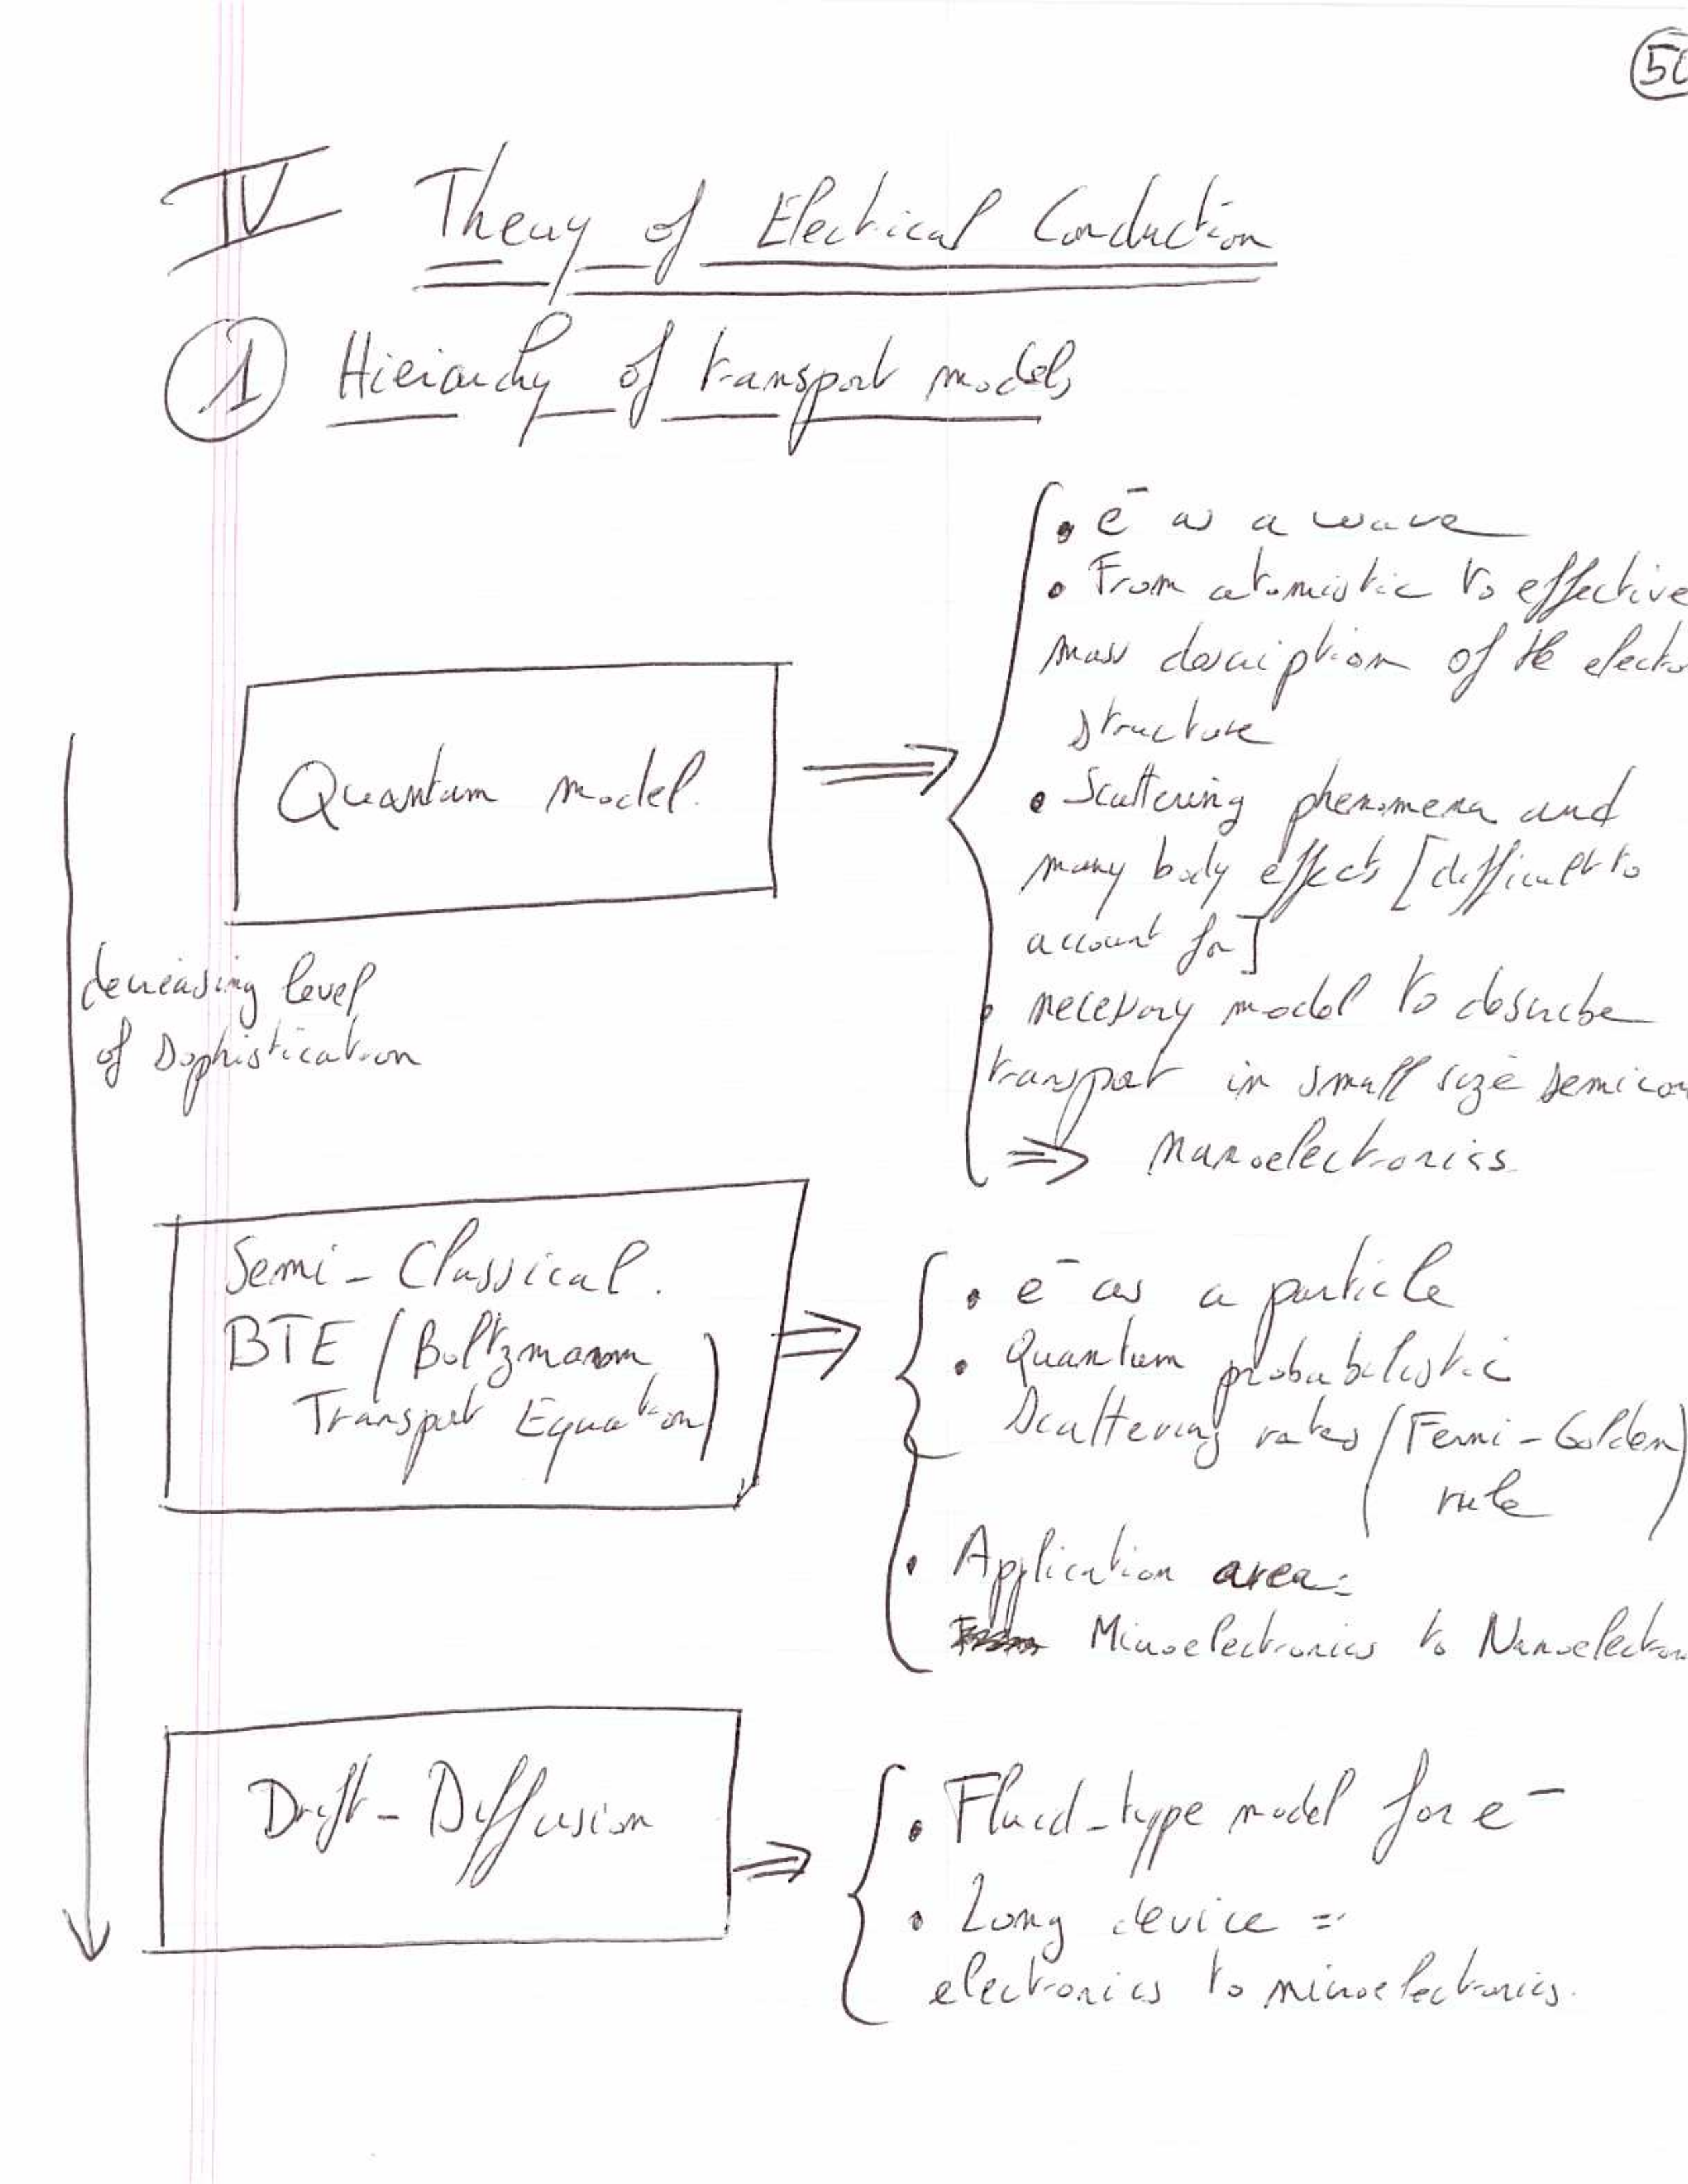 50
IV Theory of Electrical Conduction
1 Hierarchy of transport models
• e⁻ as a wave
• From atomistic to effective
mass description of the electro
structure
Quantum model.
• Scattering phenomena and
many body effects [difficult to
account for]
• necessary model to describe
transport in small size semicon
⇒ Nanoelectronics
decreasing level
of Sophistication
Semi-Classical.
BTE (Boltzmann
Transport Equation)
• e⁻ as a particle
• Quantum probabilistic
Scattering rates (Fermi-Golden
rule)
• Application area:
Microelectronics to Nanoelectron
Drift-Diffusion
• Fluid-type model for e⁻
• Long device =
electronics to microelectronics.